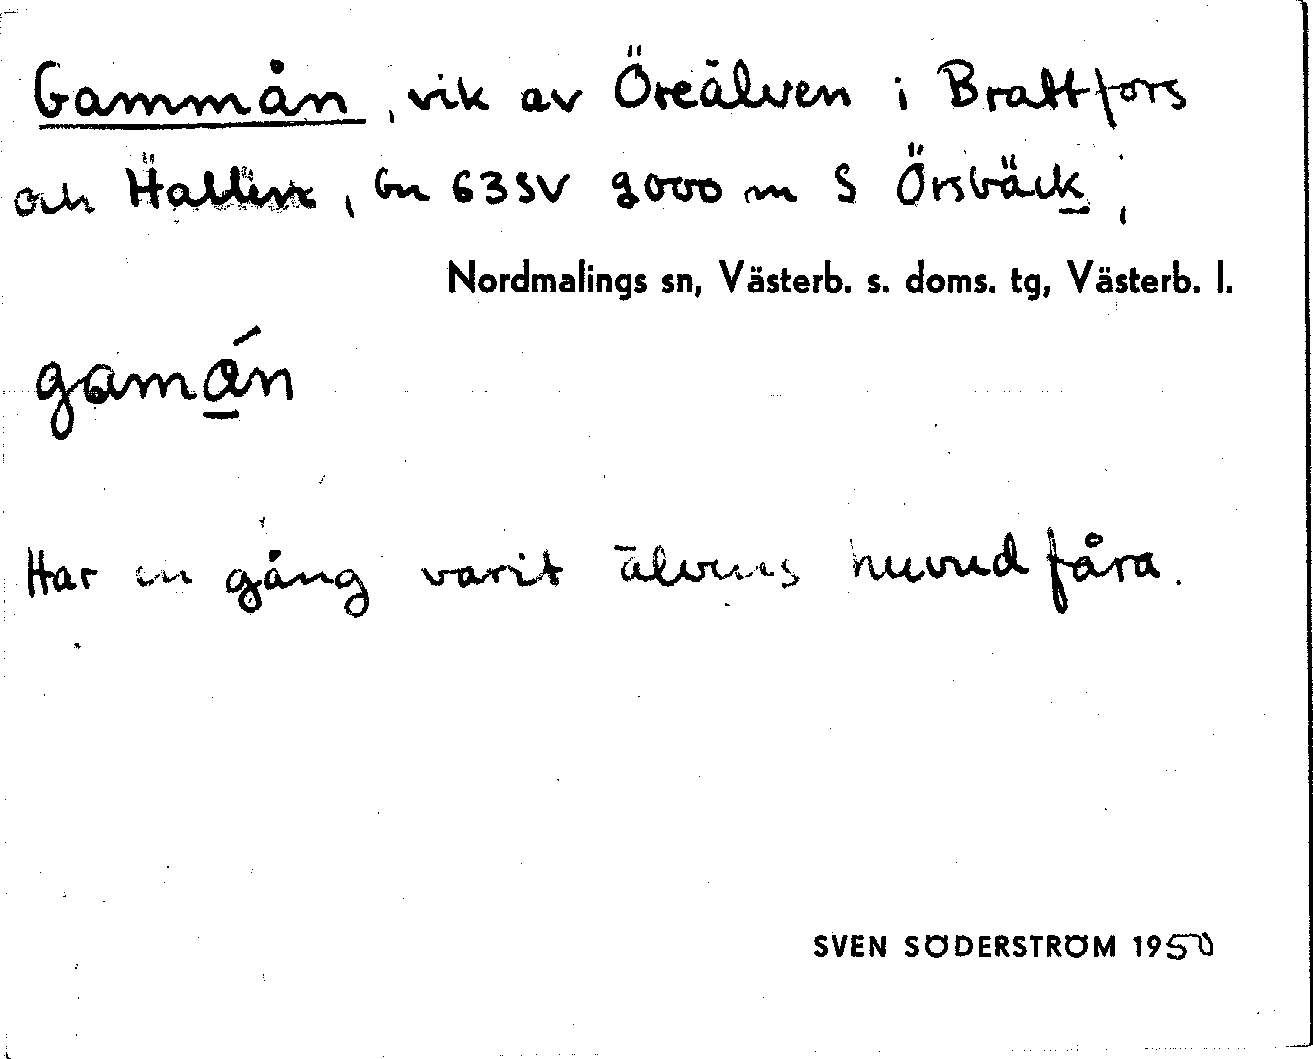 Gammån, vik av Öreälven i Brattfors
och Hällen, Gn 63SV 2000 m S Örsbäck;
Nordmalings sn, Västerb. s. doms. tg, Västerb. l.
gamán
Har en gång varit älvens huvudfåra.
SVEN SÖDERSTRÖM 1950